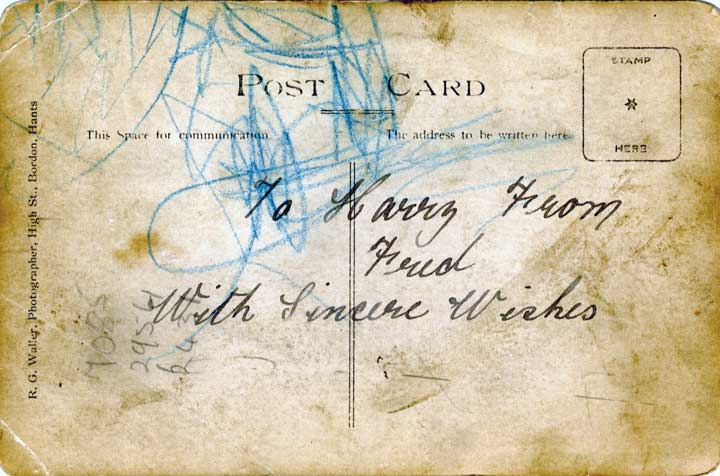 POST CARD
STAMP
HERE
This Space for communication
The address to be written here
To Harry From
Fred
With Sincere Wishes
R. G. Waller, Photographer, High St., Bordon, Hants